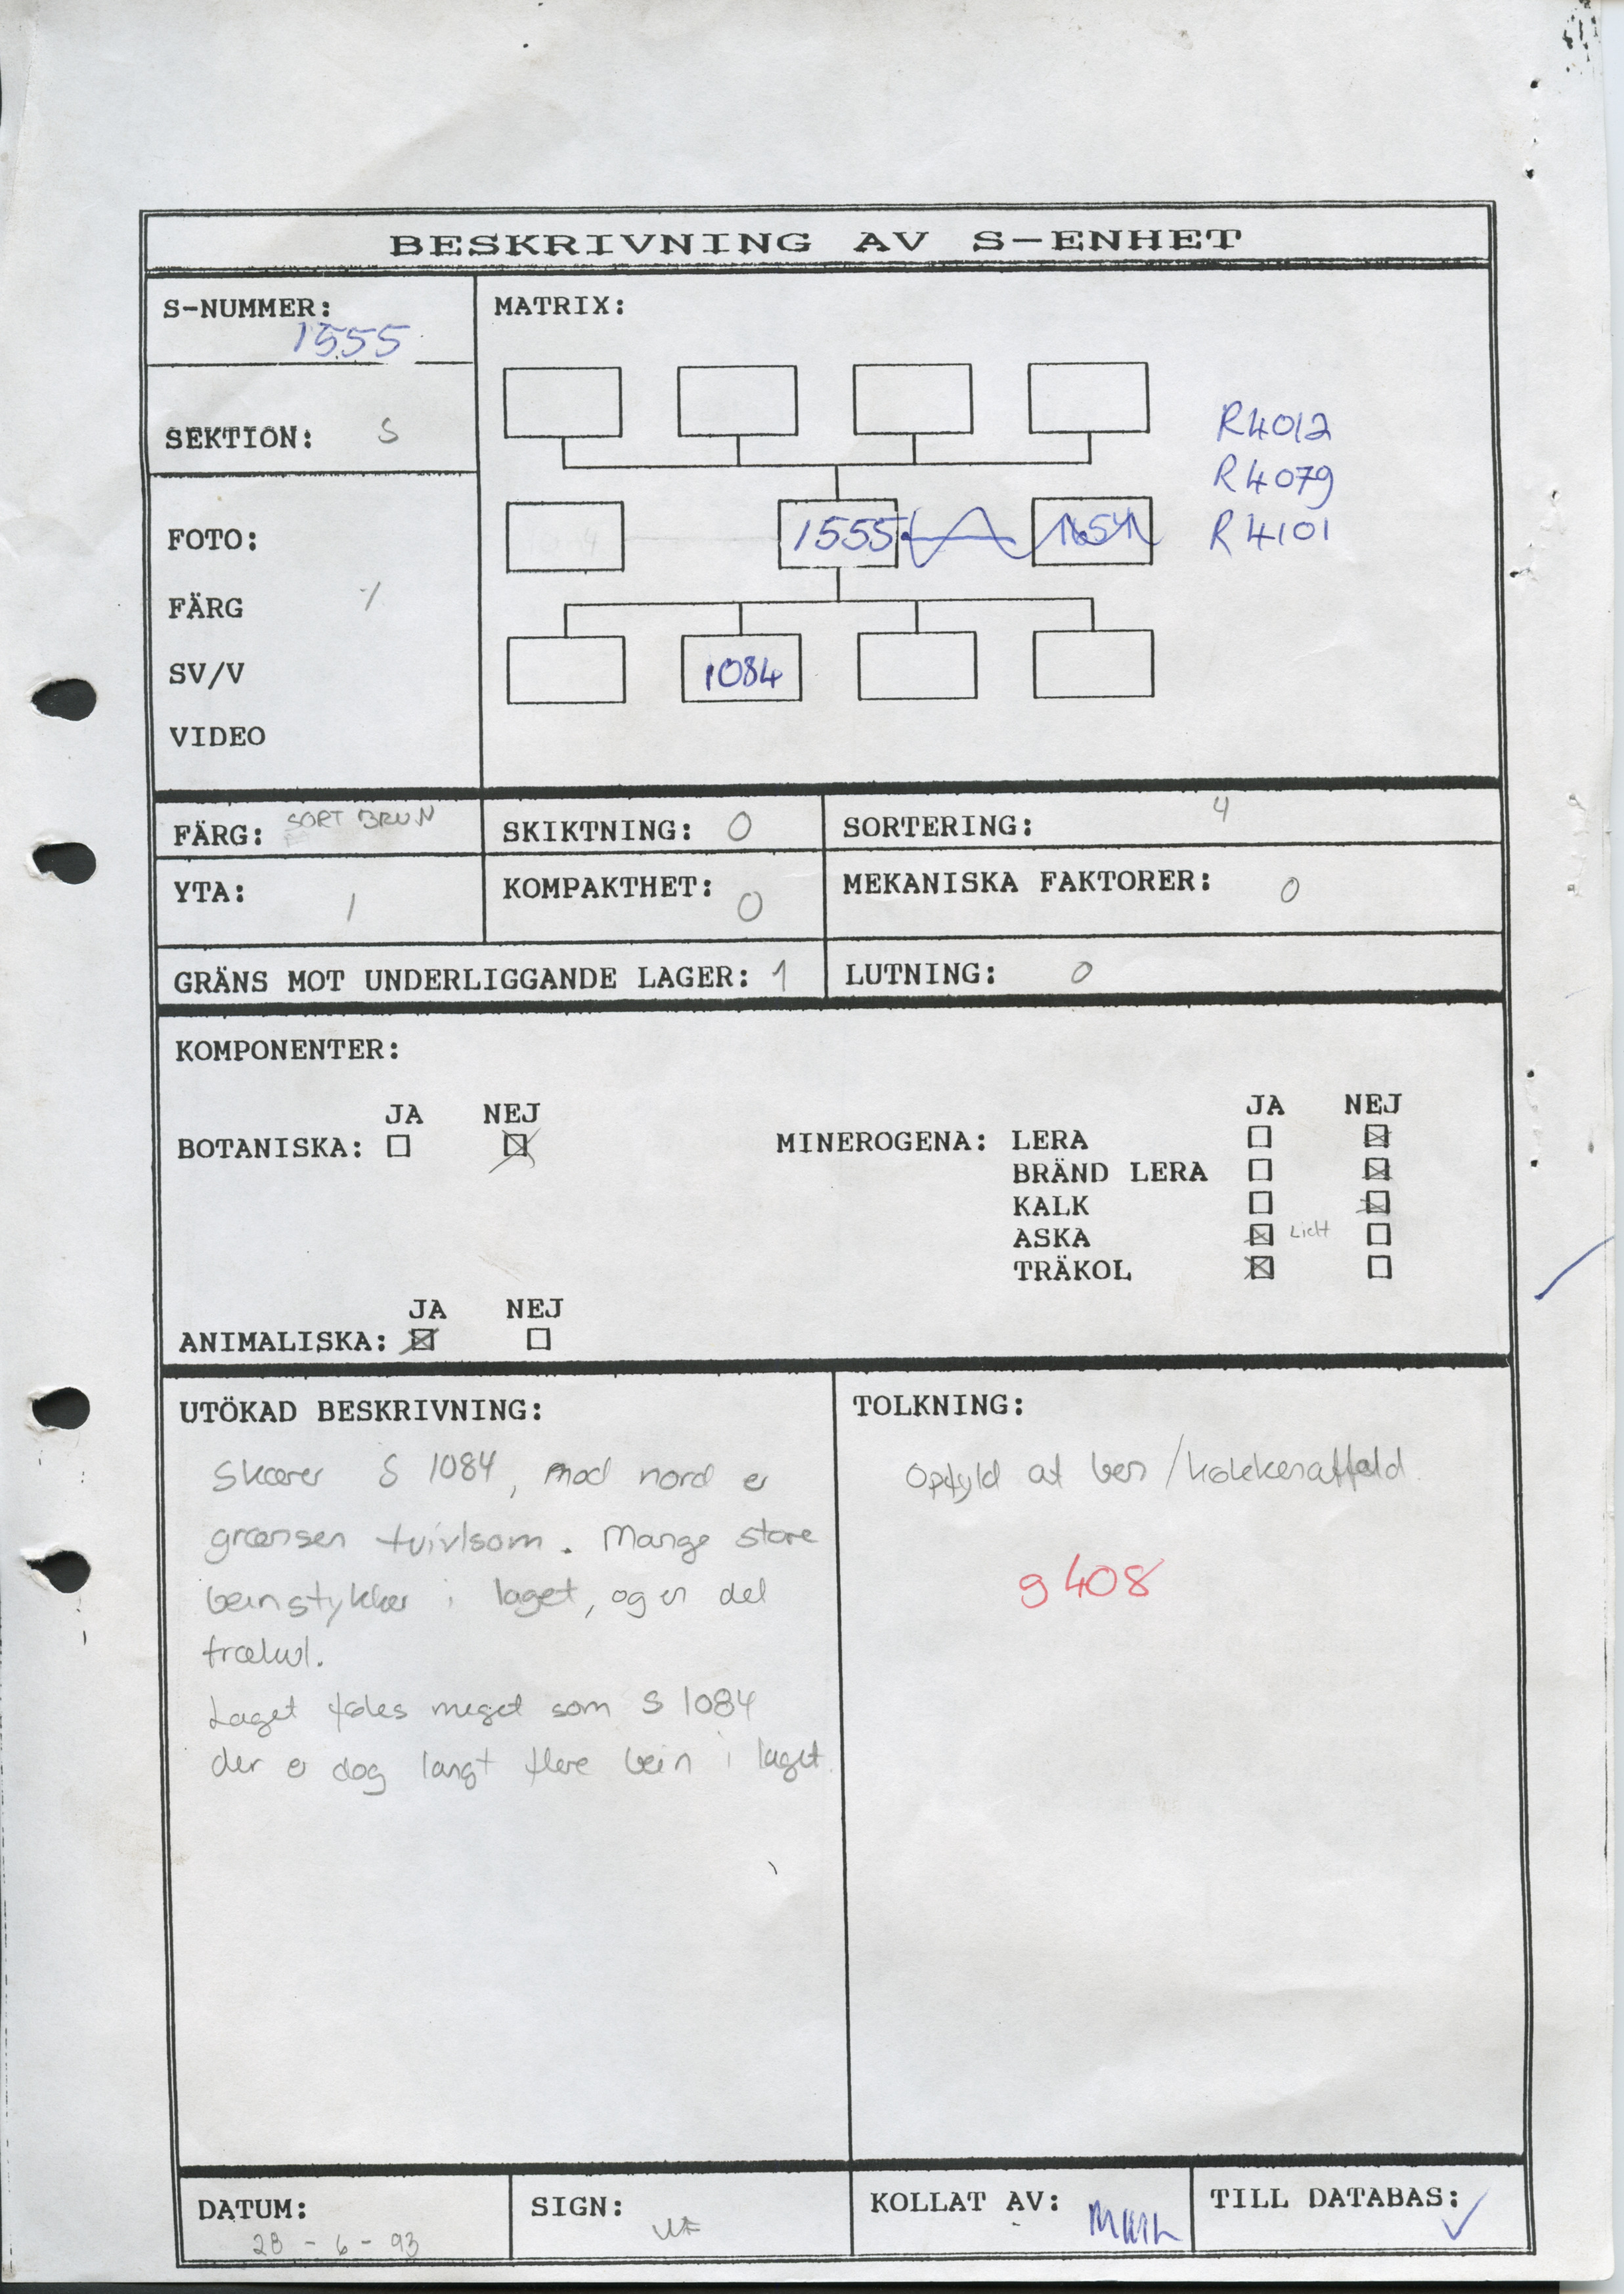 BESKRIVNING AV S-ENHET
S-NUMMER:
1555
SEKTION: S
FOTO:
FÄRG
SV/V
VIDEO
MATRIX:
R4012
R4079
R4101
1555
1084
FÄRG: SORT BRUN
SKIKTNING: 0
SORTERING: 4
YTA: 1
KOMPAKTHET: 0
MEKANISKA FAKTORER: 0
GRÄNS MOT UNDERLIGGANDE LAGER: 1
LUTNING: 0
KOMPONENTER:
JA NEJ
BOTANISKA:
JA NEJ
MINEROGENA: LERA
BRÄND LERA
KALK
ASKA
TRÄKOL
JA NEJ
ANIMALISKA:
UTÖKAD BESKRIVNING:
Skærer S 1084, mod nord er
grænsen tvivlsom. Mange store
beinstykker i laget, og en del
trækul.
Laget føles meget som S 1084
der er dog langt flere bein i laget.
TOLKNING:
Opfyld af ben/køkkenaffald.
g 408
DATUM:
28-6-93
SIGN:
KOLLAT AV:
TILL DATABAS: ✓